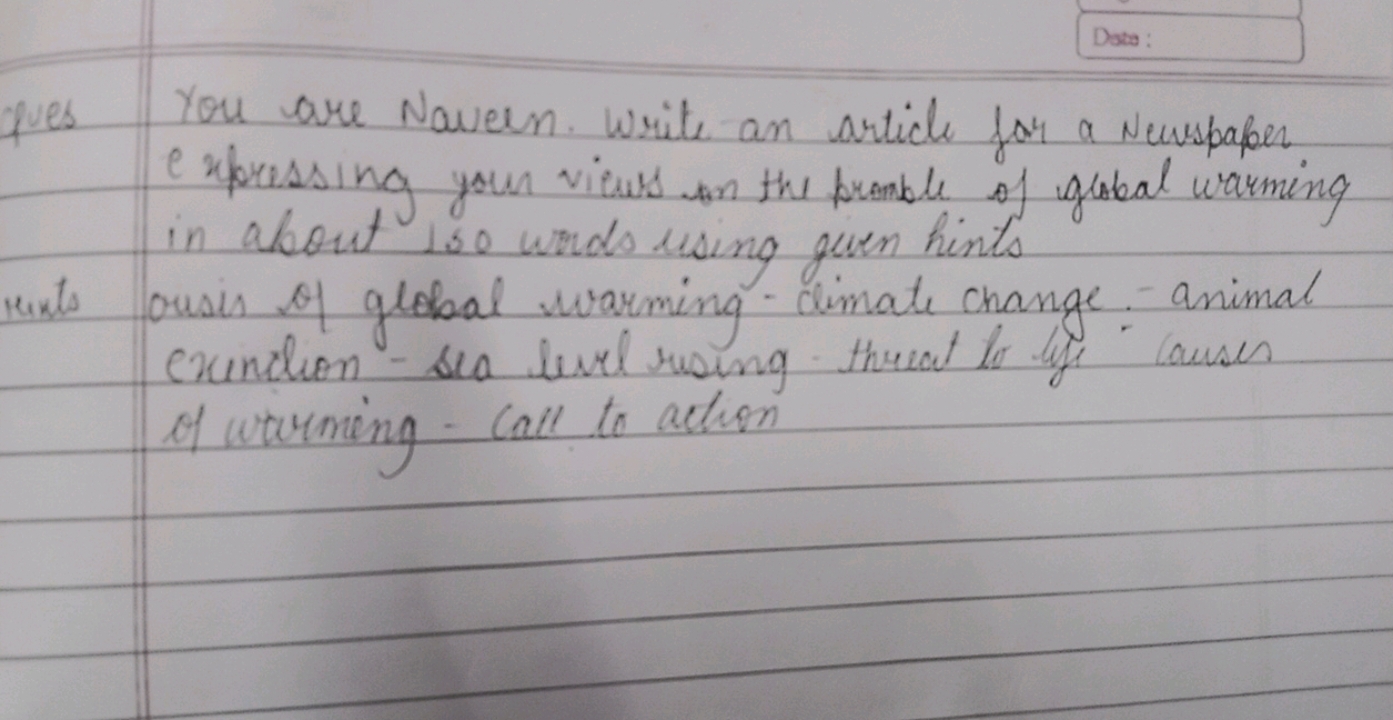 Date :
ques You are Naveen. Write an article for a Newspaper
expressing your views on the bromble of global warming
in about 150 words using given hints
hints ousis of global warming - climate change - animal
exinction - sea level rusing - threat to life - causes
of warming - call to action